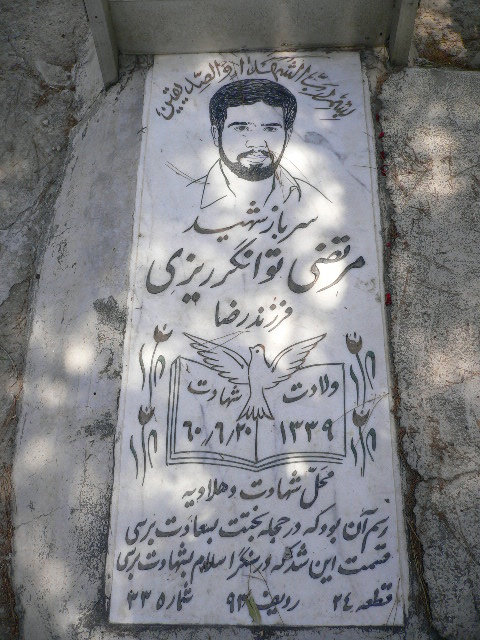 بسم رب الشهداء و الصدیقین
سرباز شهید
مرتضی توانگر ریزی
فرزند رضا
ولادت شهادت
۱۳۳۹ ۶۰/۶/۲۰
محل شهادت دهلاویه
رسم آن بود که در حجله بختت بسعادت برسی
قسمت این شد که در سنگر اسلام بشهادت برسی
قطعه ۲۴ ردیف ۹۳ شماره ۳۳